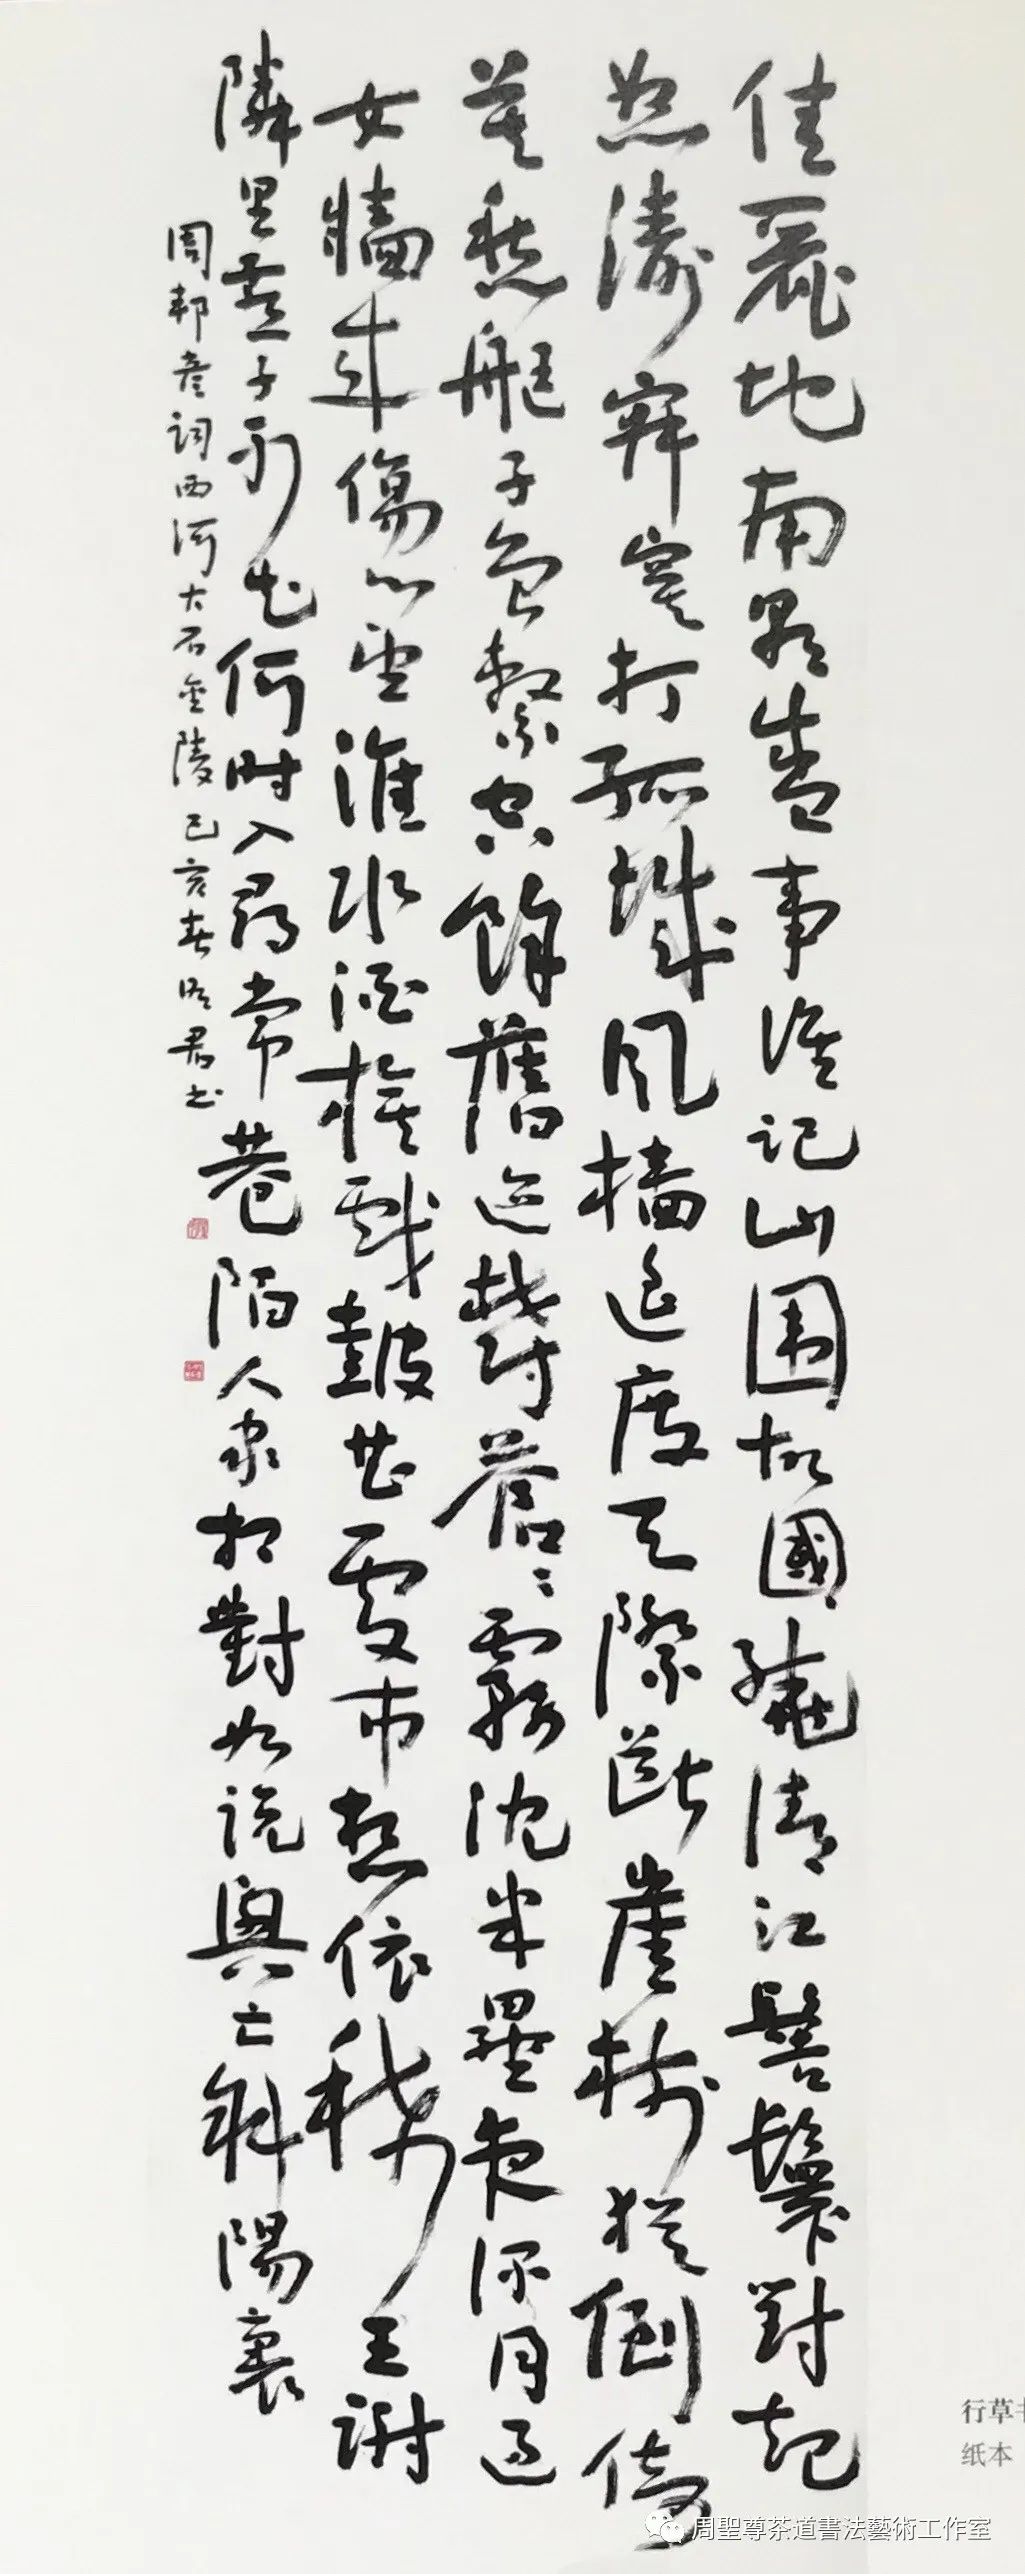 佳麗地南朝盛事誰記山围故國繞清江髻鬟對起
怒濤寂寞打孤城風檣遥度天際斷崖樹猶倒倚
莫愁艇子曾繫空餘舊迹鬱蒼〻霧沈半壘夜深月過
女牆来傷心望淮水酒旗戲鼓甚處市想依稀王謝
隣里燕子何時入尋常巷陌人家相對如説興亡斜陽裏
周邦彦詞西河大石金陵己亥春君书
行草
纸本
周聖尊茶道書法藝術工作室